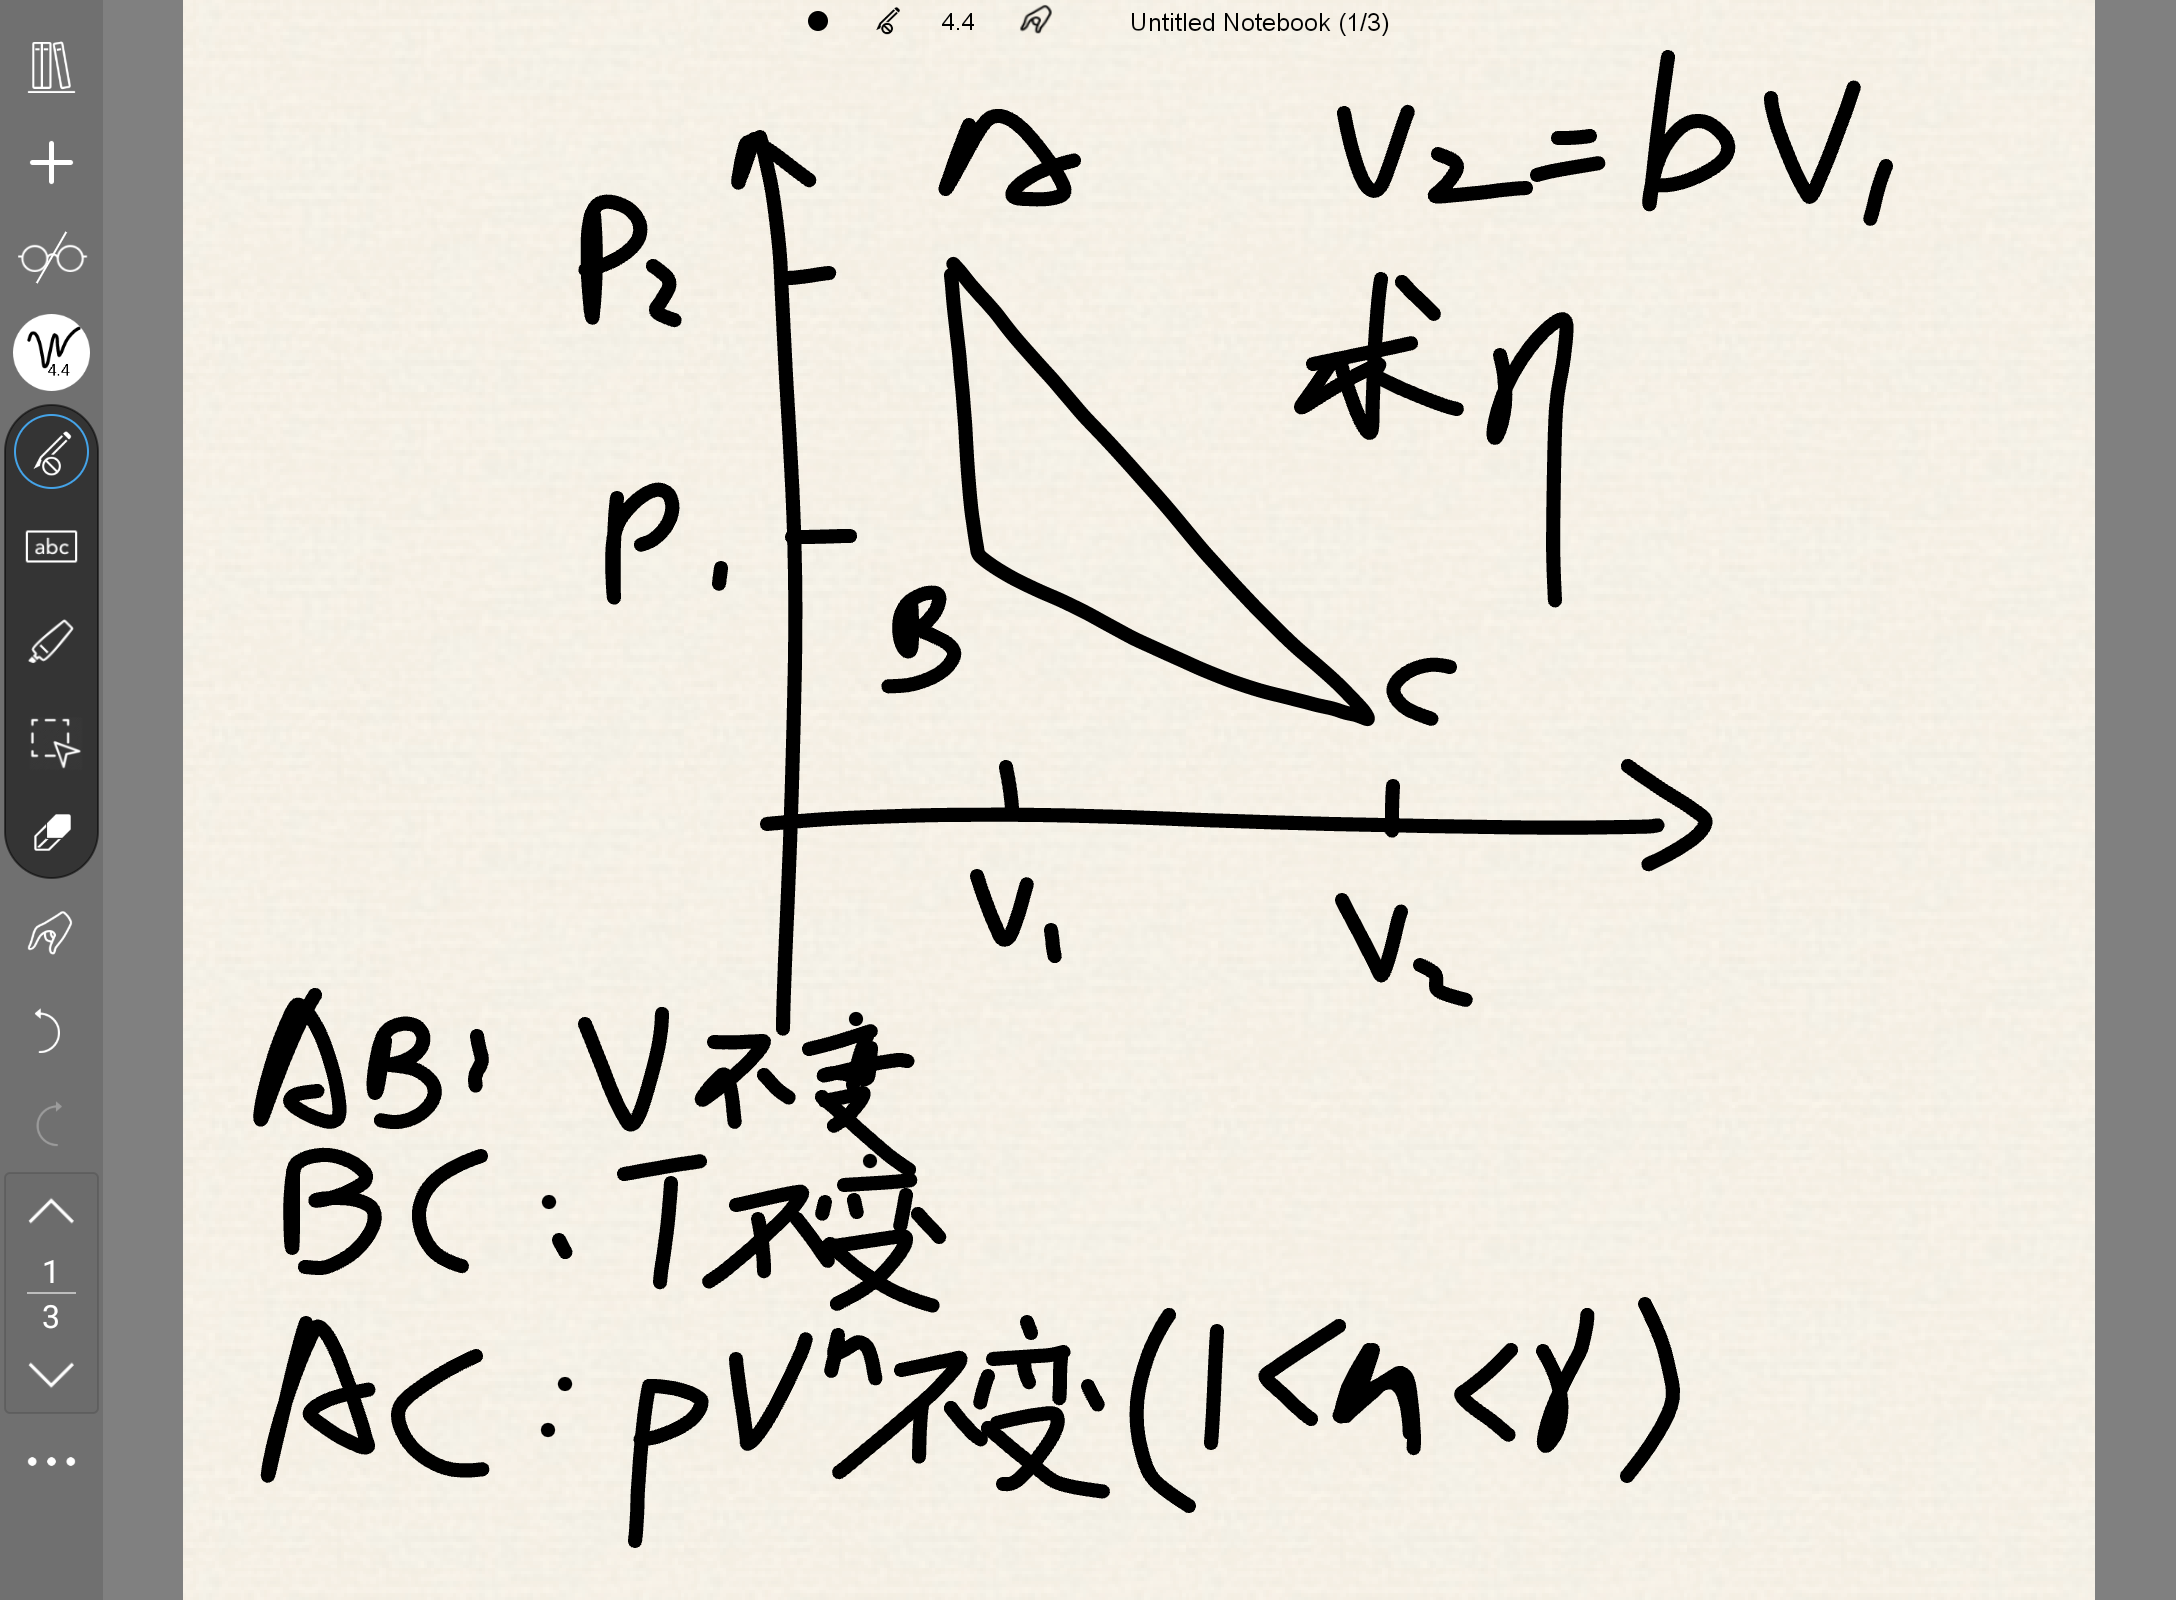 4.4 Untitled Notebook (1/3)
A
V₂=bV₁
P₂
求η
4.4
abc
P₁
B
C
V₁
V₂
AB: V不变
BC: T不变
AC: pVⁿ不变(1<n<γ)
1
3